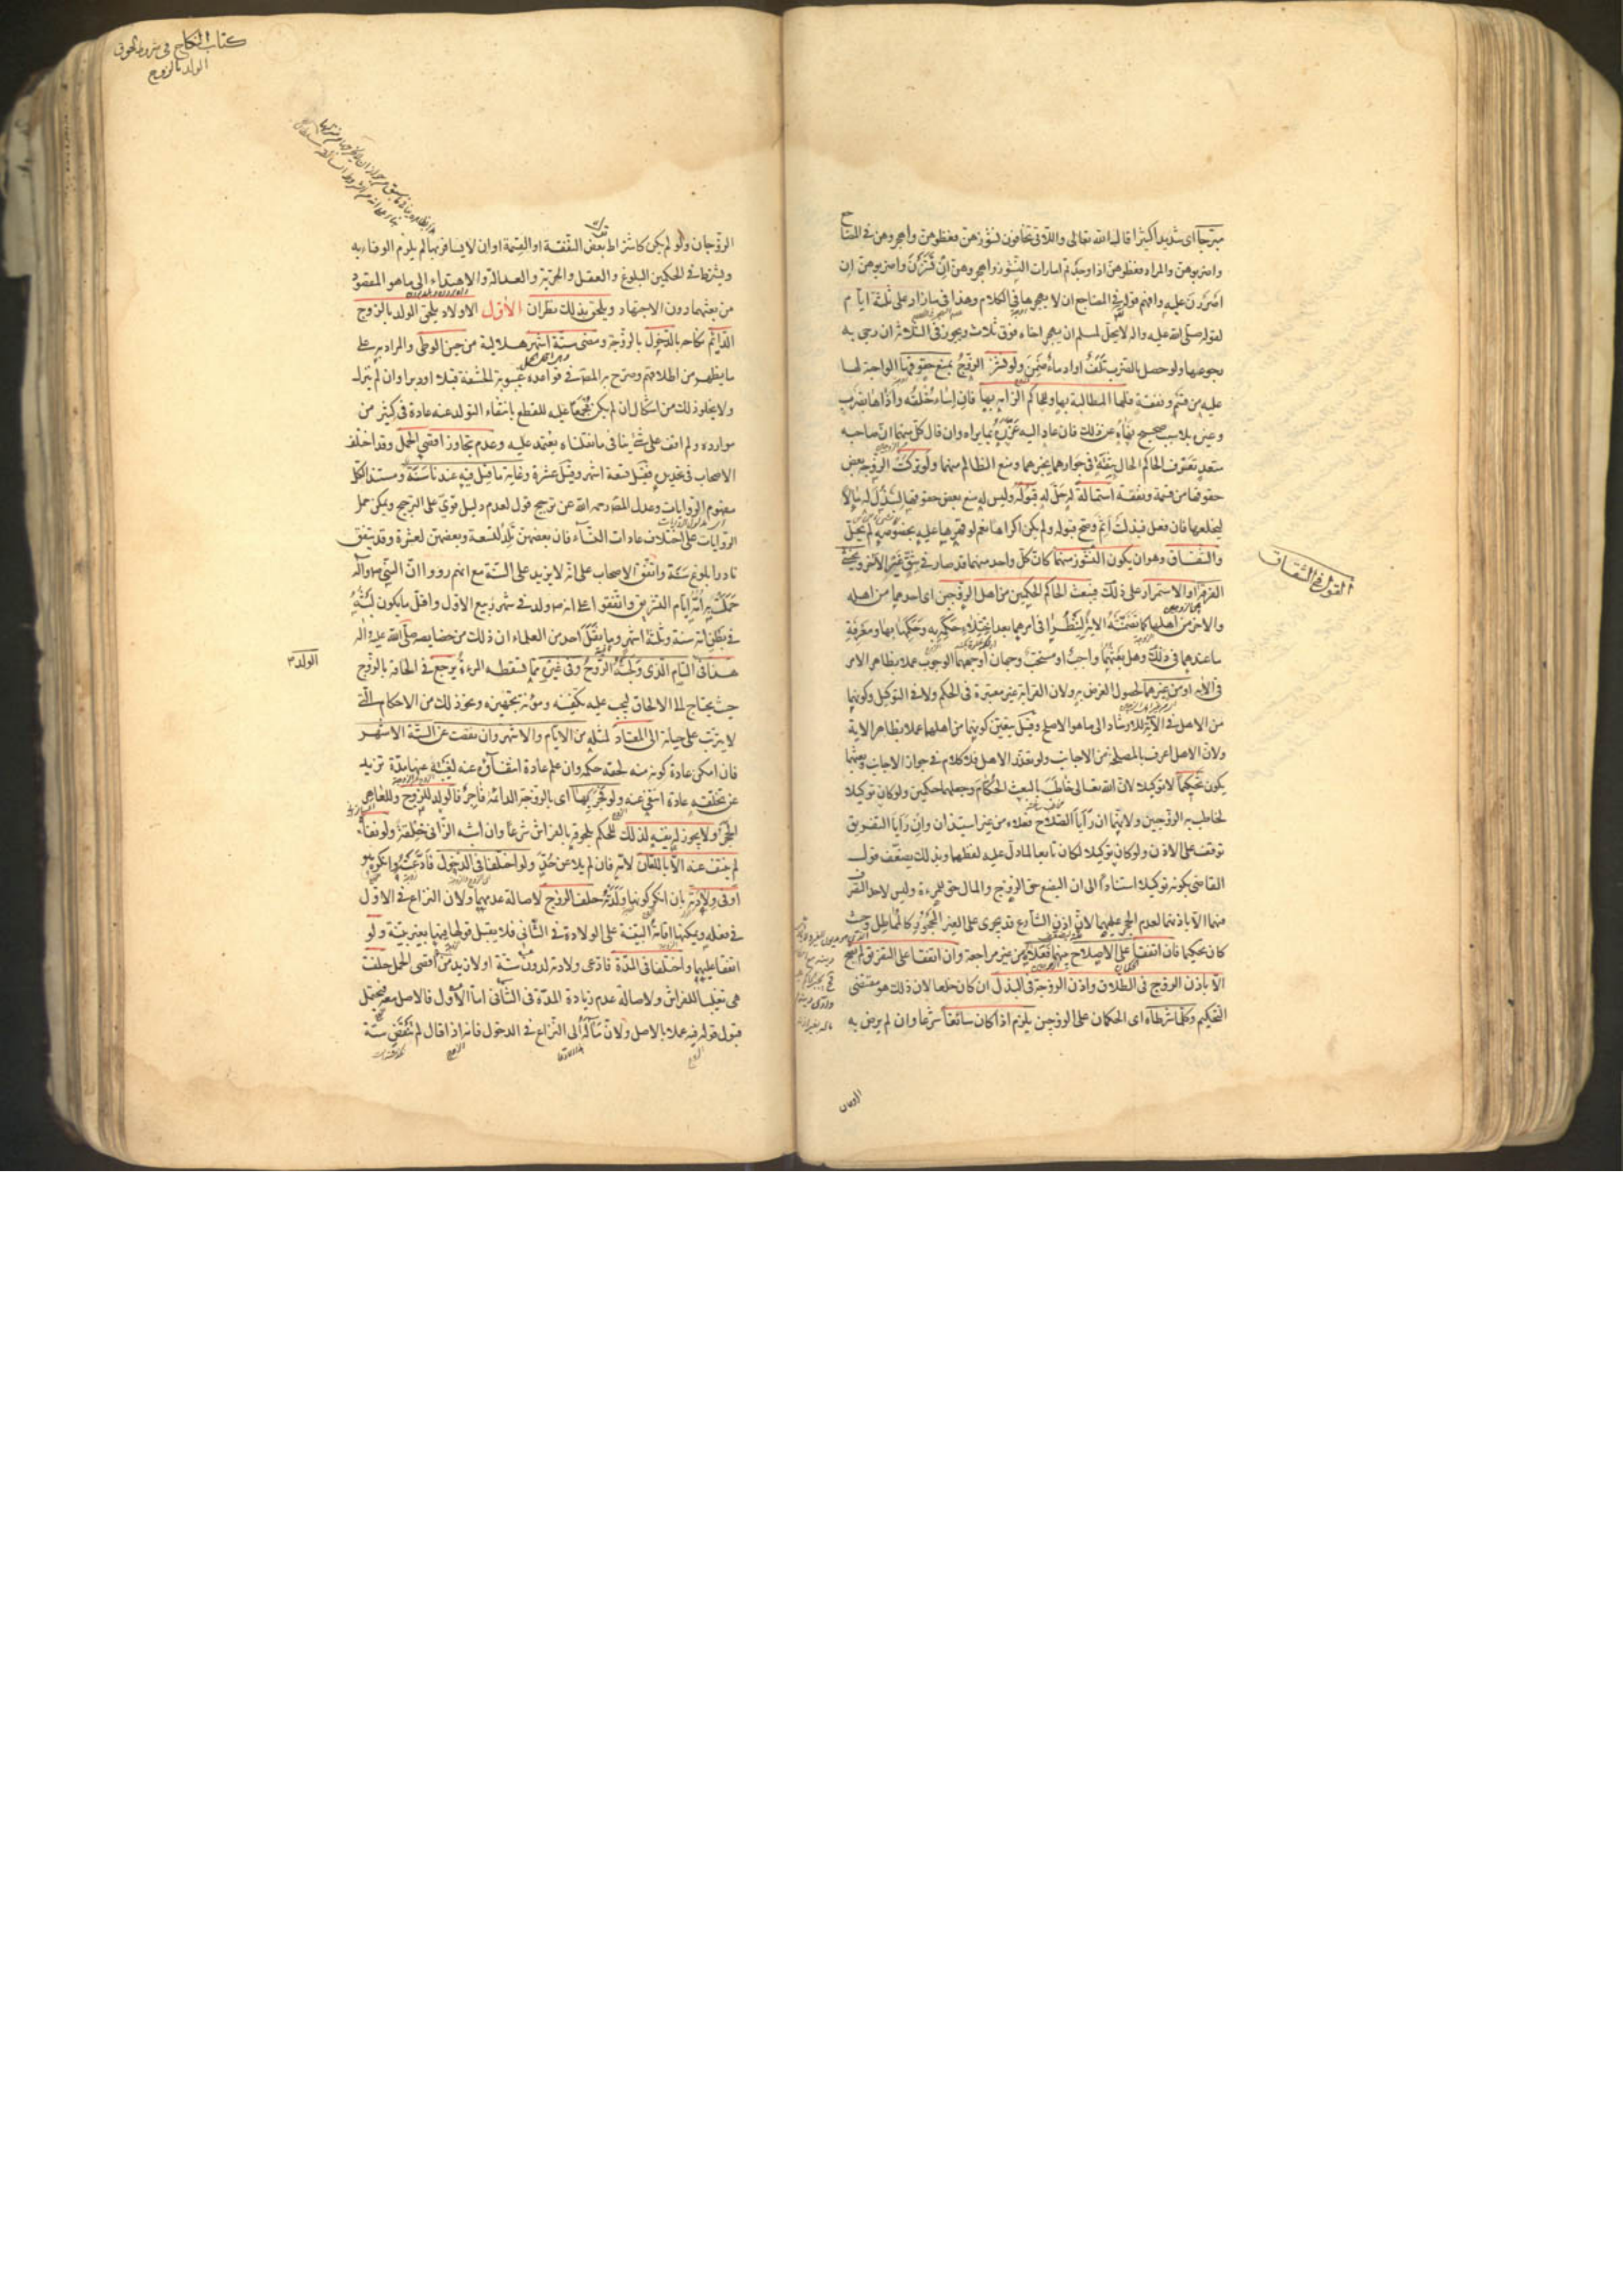 مبرحا اى شديدا كثيرا قال الله تعالى واللاتى تخافون نشوزهن فعظوهن واهجروهن فى المضاجع
واضربوهن والمراد فعظوهن اذا وجدتم امارات النشوز واهجروهن ان نشزن واضربوهن ان
اصررن عليه وافهم قوله فى المضاجع ان لا يهجرها فى الكلام وهذا فى ما زاد على ثلثة ايام
لقوله صلى الله عليه واله لا يحل لمسلم ان يهجر اخاه فوق ثلاث ويجوز فى الثلاثة ان رجى به
رجوعها ولو حصل بالضرب تلف او ادماء ضمن ولو نشز الزوج بمنع حقوقها الواجبة لها
عليه من قسم ونفقة فلها المطالبة بها وللحاكم الزامه بها فان اساء خلقه واذاها بضرب
وغيره بلا سبب صحيح نهاه عن ذلك فان عاد اليه عزره بما يراه وان قال كل منهما ان صاحبه
متعد تعرف الحاكم الحال بثقة فى جوارهما يخبرهما ومنع الظالم منهما ولو تركت الزوجة بعض
حقوقها من قسمة ونفقة استمالة له حل له قبوله وليس له منع بعض حقوقها لتبذل له مالا
ليخلعها فان فعل فبذلت اثم وصح قبوله ولم يكن اكراها نعم لو قهرها عليه بخصوصه لم يحل
والشقاق وهو ان يكون النشوز منهما كان كل واحد منهما قد صار فى شق غير الآخر ويخشى
القول فى الشقاق
الفرقة او الاستمرار على ذلك فيبعث الحاكم الحكمين من اهل الزوجين اى احدهما من اهله
والآخر من اهلها كما تضمنته الاية لينظرا فى امرهما بعد اختلاء حكمه به وحكمها بها ومعرفة
ما عندهما فى ذلك وهل بعثهما واجب او مستحب وجهان اوجههما الوجوب عملا بظاهر الامر
فى الآية او من غيرهما لحصول الغرض به ولان القرابة غير معتبرة فى الحكم ولا فى التوكيل وكونهما
من الاهل فى الآية للارشاد الى ما هو الاصلح وقيل يتعين كونهما من اهلهما عملا بظاهر الاية
ولان الاهل اعرف بالمصلحة من الاجانب ولو تعذر الاهل فلا كلام فى جواز الاجانب وبعثهما
يكون تحكيما لا توكيلا لان الله تعالى خاطب بالبعث الحكام وجعلهما حكمين ولو كان توكيلا
لخاطب به الزوجين ولانهما ان رايا الصلاح فعلاه من غير استيذان وان رايا التفريق
توقف على الاذن ولو كان توكيلا لكان تابعا لما دل عليه لفظهما وبذلك يضعف قول
القاضى بكونه توكيلا استنادا الى ان البضع حق الزوج والمال حق للمرءة وليس لاحد التصرف
فيهما الا باذنهما لعدم الحجر عليهما لان اذن الشارع قد يجرى على الغير المحجور كالمماطل وحيث
كان تحكيما فان اتفقا على الاصلاح بينهما فعلاه من غير مراجعة وان اتفقا على التفريق لم يصح
الا باذن الزوج فى الطلاق واذن الزوجة فى البذل ان كان خلعا لان ذلك هو مقتضى
التحكيم وكلما شرطاه اى الحكمان على الزوجين يلزم اذا كان سائغا شرعا وان لم يرض به
الزوجان
كتاب النكاح فى
الولد بالزوج
الزوجان ولو لم يكن كاشتراط بعض النفقة او القسمة او ان لا يسافر بها لم يلزم الوفاء به
ويشترط فى الحكمين البلوغ والعقل والحرية والعدالة والاهتداء الى ما هو المقصود
من بعثهما دون الاجتهاد ويلحق بذلك نظران الاول الاولاد يلحق الولد بالزوج
الدائم نكاحه بالدخول بالزوجة ومضى ستة اشهر هلالية من حين الوطى والمراد به على
ما يظهر من اطلاقهم وصرح به المصنف فى قواعده غيبوبة الحشفة قبلا او دبرا وان لم ينزل
ولا يخلو ذلك من اشكال ان لم يكن مجمعا عليه للقطع بانتفاء التولد عنه عادة فى كثير من
موارده ولم اقف على شئ ينافى ما نقلناه يعتمد عليه وعدم تجاوز اقصى الحمل وقد اختلف
الاصحاب فى تحديده فقيل تسعة اشهر وقيل عشرة وغاية ما قيل فيه عندنا سنة ومستند الكل
مفهوم الروايات وعدل المصنف رحمه الله عن ترجيح قول لعدم دليل قوى على الترجيح ويمكن حمل
الروايات على اختلاف عادات النساء فان بعضهن تلد لتسعة وبعضهن لعشرة وقد يتفق
نادرا بلوغ سنة واتفق الاصحاب على انه لا يزيد على السنة مع انهم رووا ان النبى ص وآله
حملت به امه ايام التشريق واتفقوا على انه ص ولد فى شهر ربيع الاول واقل ما يكون لبثه
فى بطن امه سنة وثلثة اشهر وما نقل احد من العلماء ان ذلك من خصايصه صلى الله عليه واله
هذا فى التام الذى ولجته الروح وفى غيره مما تسقطه المرءة يرجع فى الحاقه بالزوج
الولد
حيث يحتاج الى الالحاق ليجب عليه تكفينه ومؤنة تجهيزه ونحو ذلك من الاحكام التى
لا يترتب على حياته الى المعتاد لمثله من الايام والاشهر وان نقصت عن الستة الاشهر
فان امكن عادة كونه منه لحقه حكمه وان علم عادة انتفاؤه عنه لغيبته عنها مدة تزيد
عن تخلقه عادة انتفى عنه ولو فجر بها اى بالزوجة الدائمة فاجر فالولد للزوج وللعاهر
الحجر ولا يجوز له نفيه لذلك للحكم بلحوقه بالفراش شرعا وان اشبه الزانى خلقة ولو نفاه
لم ينتف عنه الا باللعان لامه فان لم يلاعن حد ولو اختلفا فى الدخول فادعته وانكره هو
او فى ولادته بان انكر كونها ولدته حلف الزوج لاصالة عدمهما ولان النزاع فى الاول
فى فعله ويمكنها اقامة البينة على الولادة فى الثانى فلا يقبل قولها فيها بغير بينة ولو
اتفقا عليهما واختلفا فى المدة فادعى ولادته لدون ستة او لازيد من اقصى الحمل حلفت
هى تغليبا للفراش ولاصالة عدم زيادة المدة فى الثانى اما الاول فالاصل معه فيحتمل
قبول قوله فيه عملا بالاصل ولان مآله الى النزاع فى الدخول فانه اذا قال لم تنقض ستة